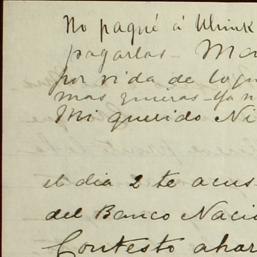 No paqué á Wink
pagarlas - Ma
por vida de
mas quieras - Ya n
Mi querido Ni
el dia 2 te acus
del Banco Nacio
Contesto ahor